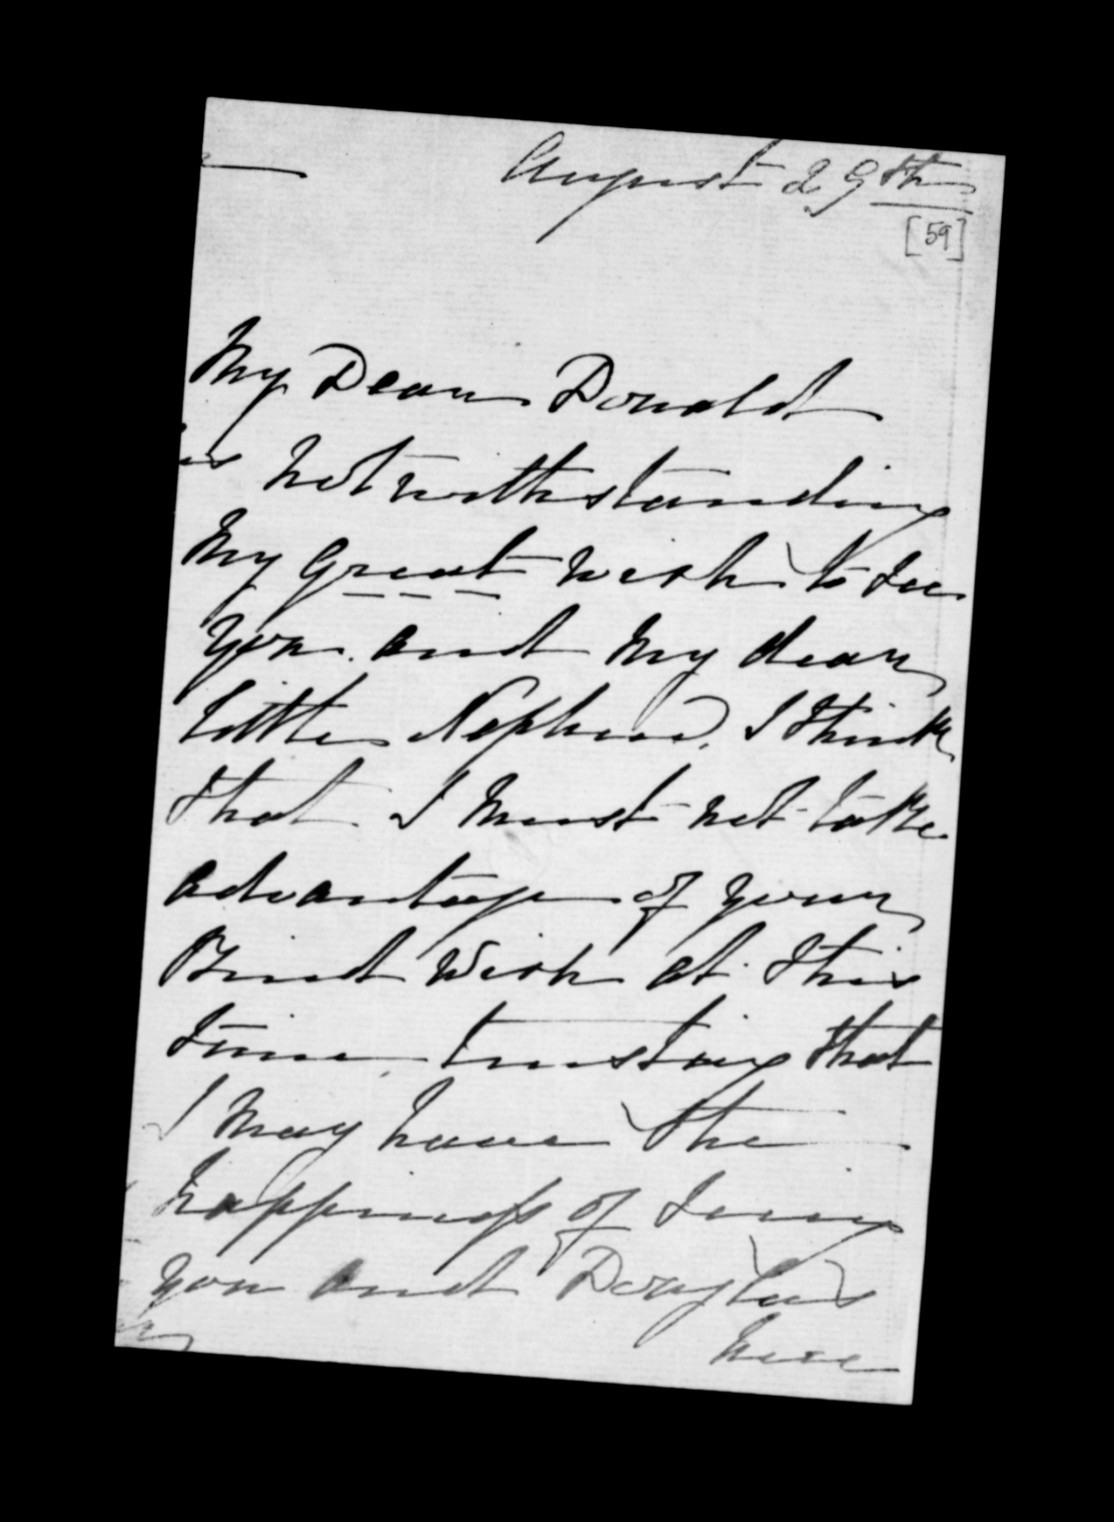 August 29th
[59]
My Dear Donald
notwithstanding
My Great wish to see
you and My dear
little Nephew, I think
that I Must not take
advantage of your
Kind Wish at this
time, trusting that
I May have the
happiness of seeing
you and Douglas
here